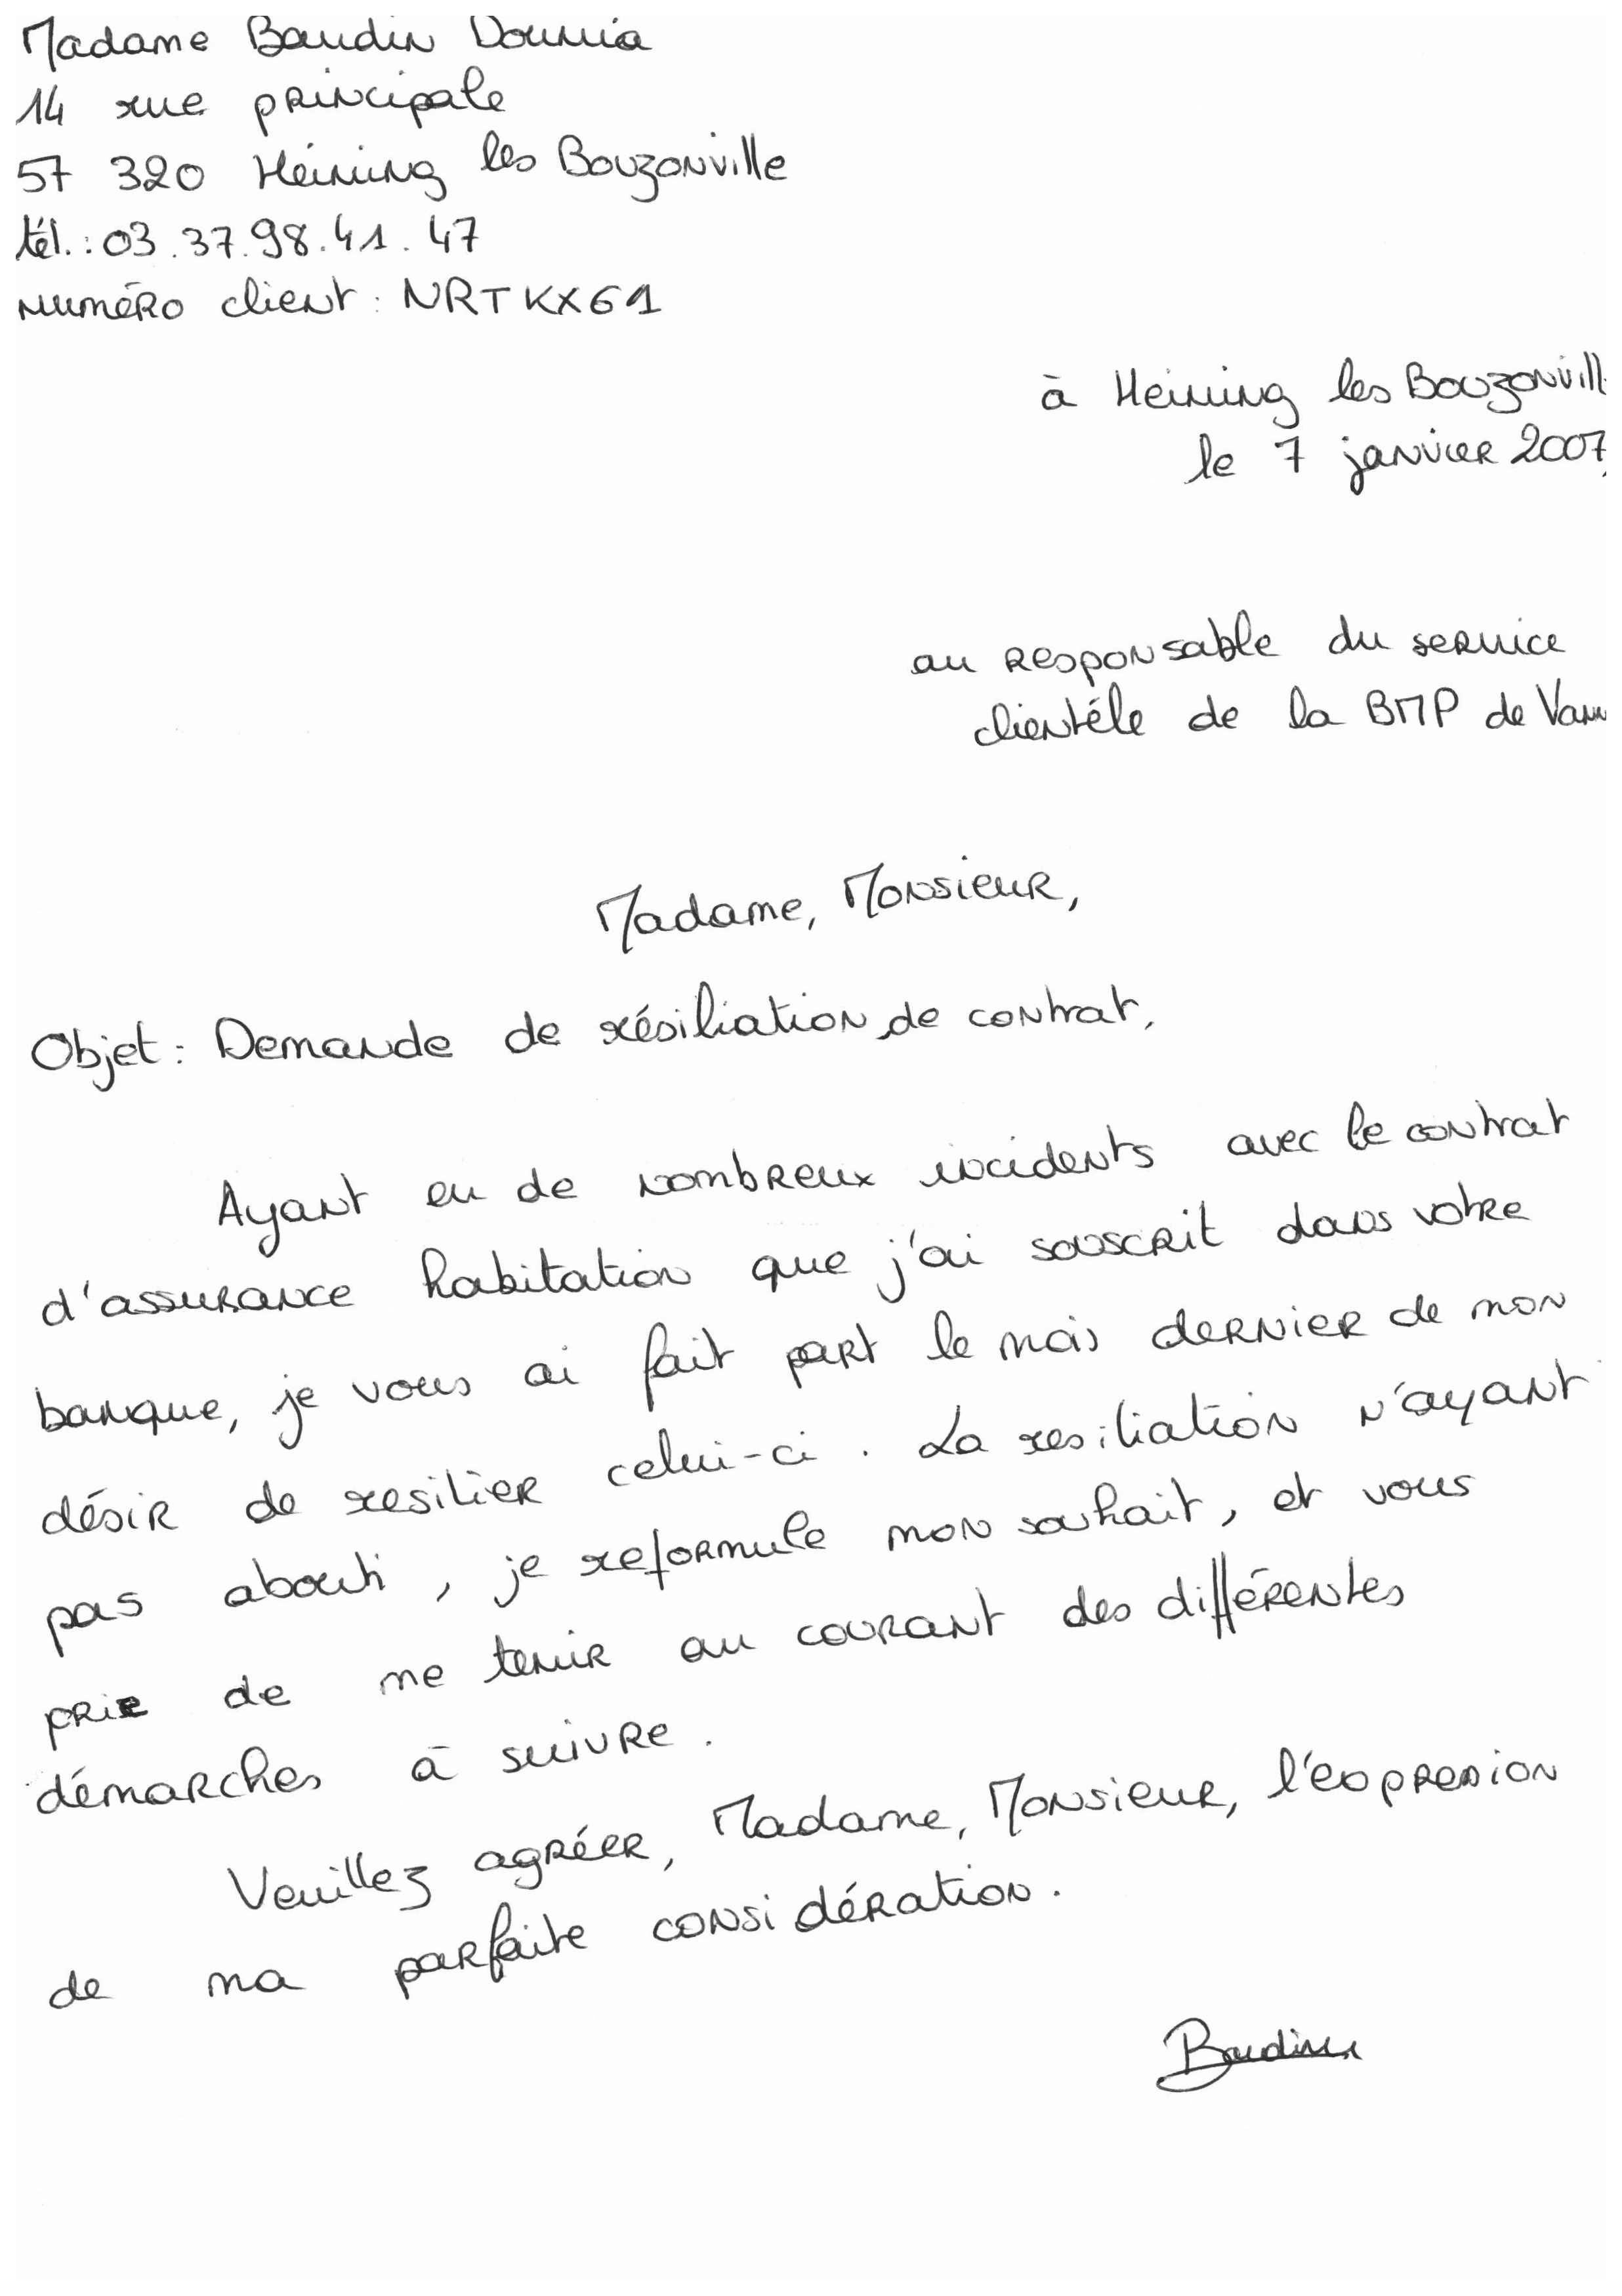 Madame Baudin Dounia
14 rue principale
57 320 Heining les Bouzonville
tél.: 03.37.98.41.47
numéro client : NRTKX61
à Heining les Bouzonvill
le 7 janvier 2007
au responsable du service
clientéle de la BMP de Vann
Madame, Monsieur,
Objet : Demande de résiliation de contrat,
Ayant eu de nombreux incidents avec le contrat
d'assurance habitation que j'ai souscrit dans votre
banque, je vous ai fait part le mois dernier de mon
désir de resilier celui-ci. La resiliation n'ayant
pas abouti, je reformule mon souhait, et vous
prie de me tenir au courant des différentes
démarches à suivre.
Veuillez agréer, Madame, Monsieur, l'expression
de ma parfaite considération.
Baudin